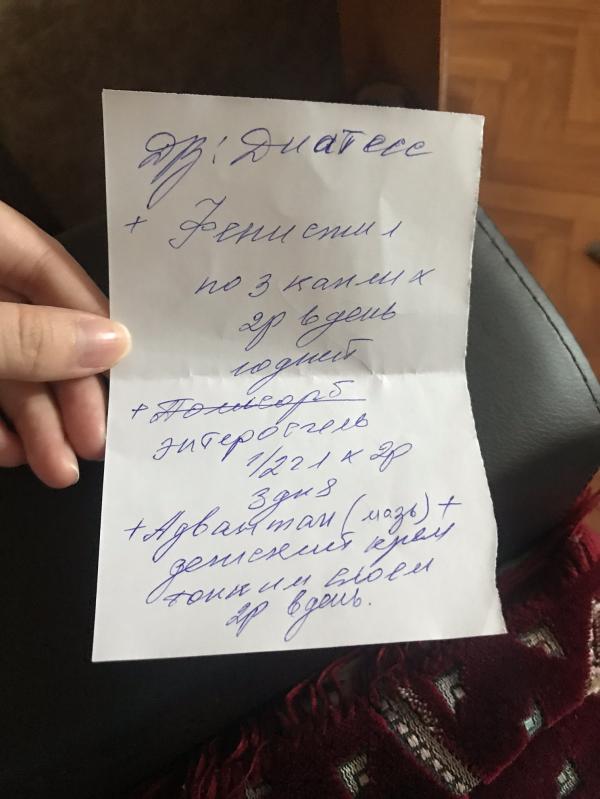 Дз: Диатесс
+ Фенистил
по 3 капли х
2р в день
10 дней
+ Полисорб
энтеросгель
1/2 ч л х 2р
3 дня
+ Адвантан (мазь) +
детский крем
тонким слоем
2р в день.